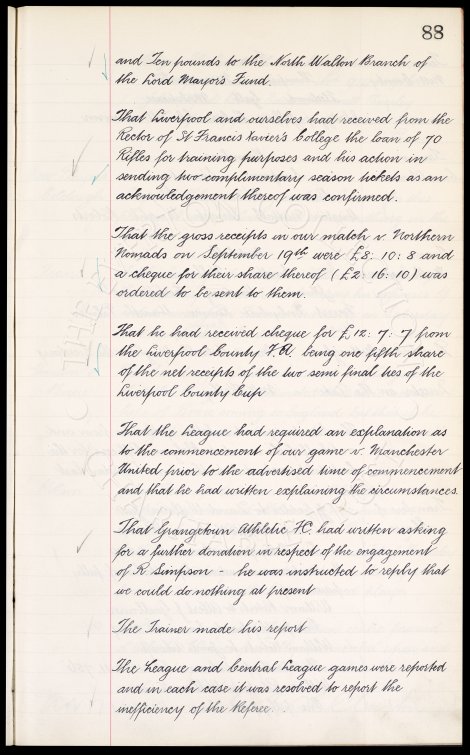 88
and Ten pounds to the North Walton Branch of
the Lord Mayor's Fund.
That Liverpool and ourselves had received from the
Rector of St Francis Xavier's College the loan of 70
Rifles for training purposes and his action in
sending two complimentary season tickets as an
acknowledgement thereof was confirmed.
That the gross receipts in our match v. Northern
Nomads on September 19th were £8: 10: 8 and
a cheque for their share thereof (£2: 16: 10) was
ordered to be sent to them.
That he had received cheque for £12: 7: 7 from
the Liverpool County F.A. being one fifth share
of the net receipts of the two semi final ties of the
Liverpool County Cup
That the League had required an explanation as
to the commencement of our game v. Manchester
United prior to the advertised time of commencement
and that he had written explaining the circumstances.
That Grangetown Athletic FC had written asking
for a further donation in respect of the engagement
of R Simpson - he was instructed to reply that
we could do nothing at present
The Trainer made his report
The League and Central League games were reported
and in each case it was resolved to report the
inefficiency of the Referee.